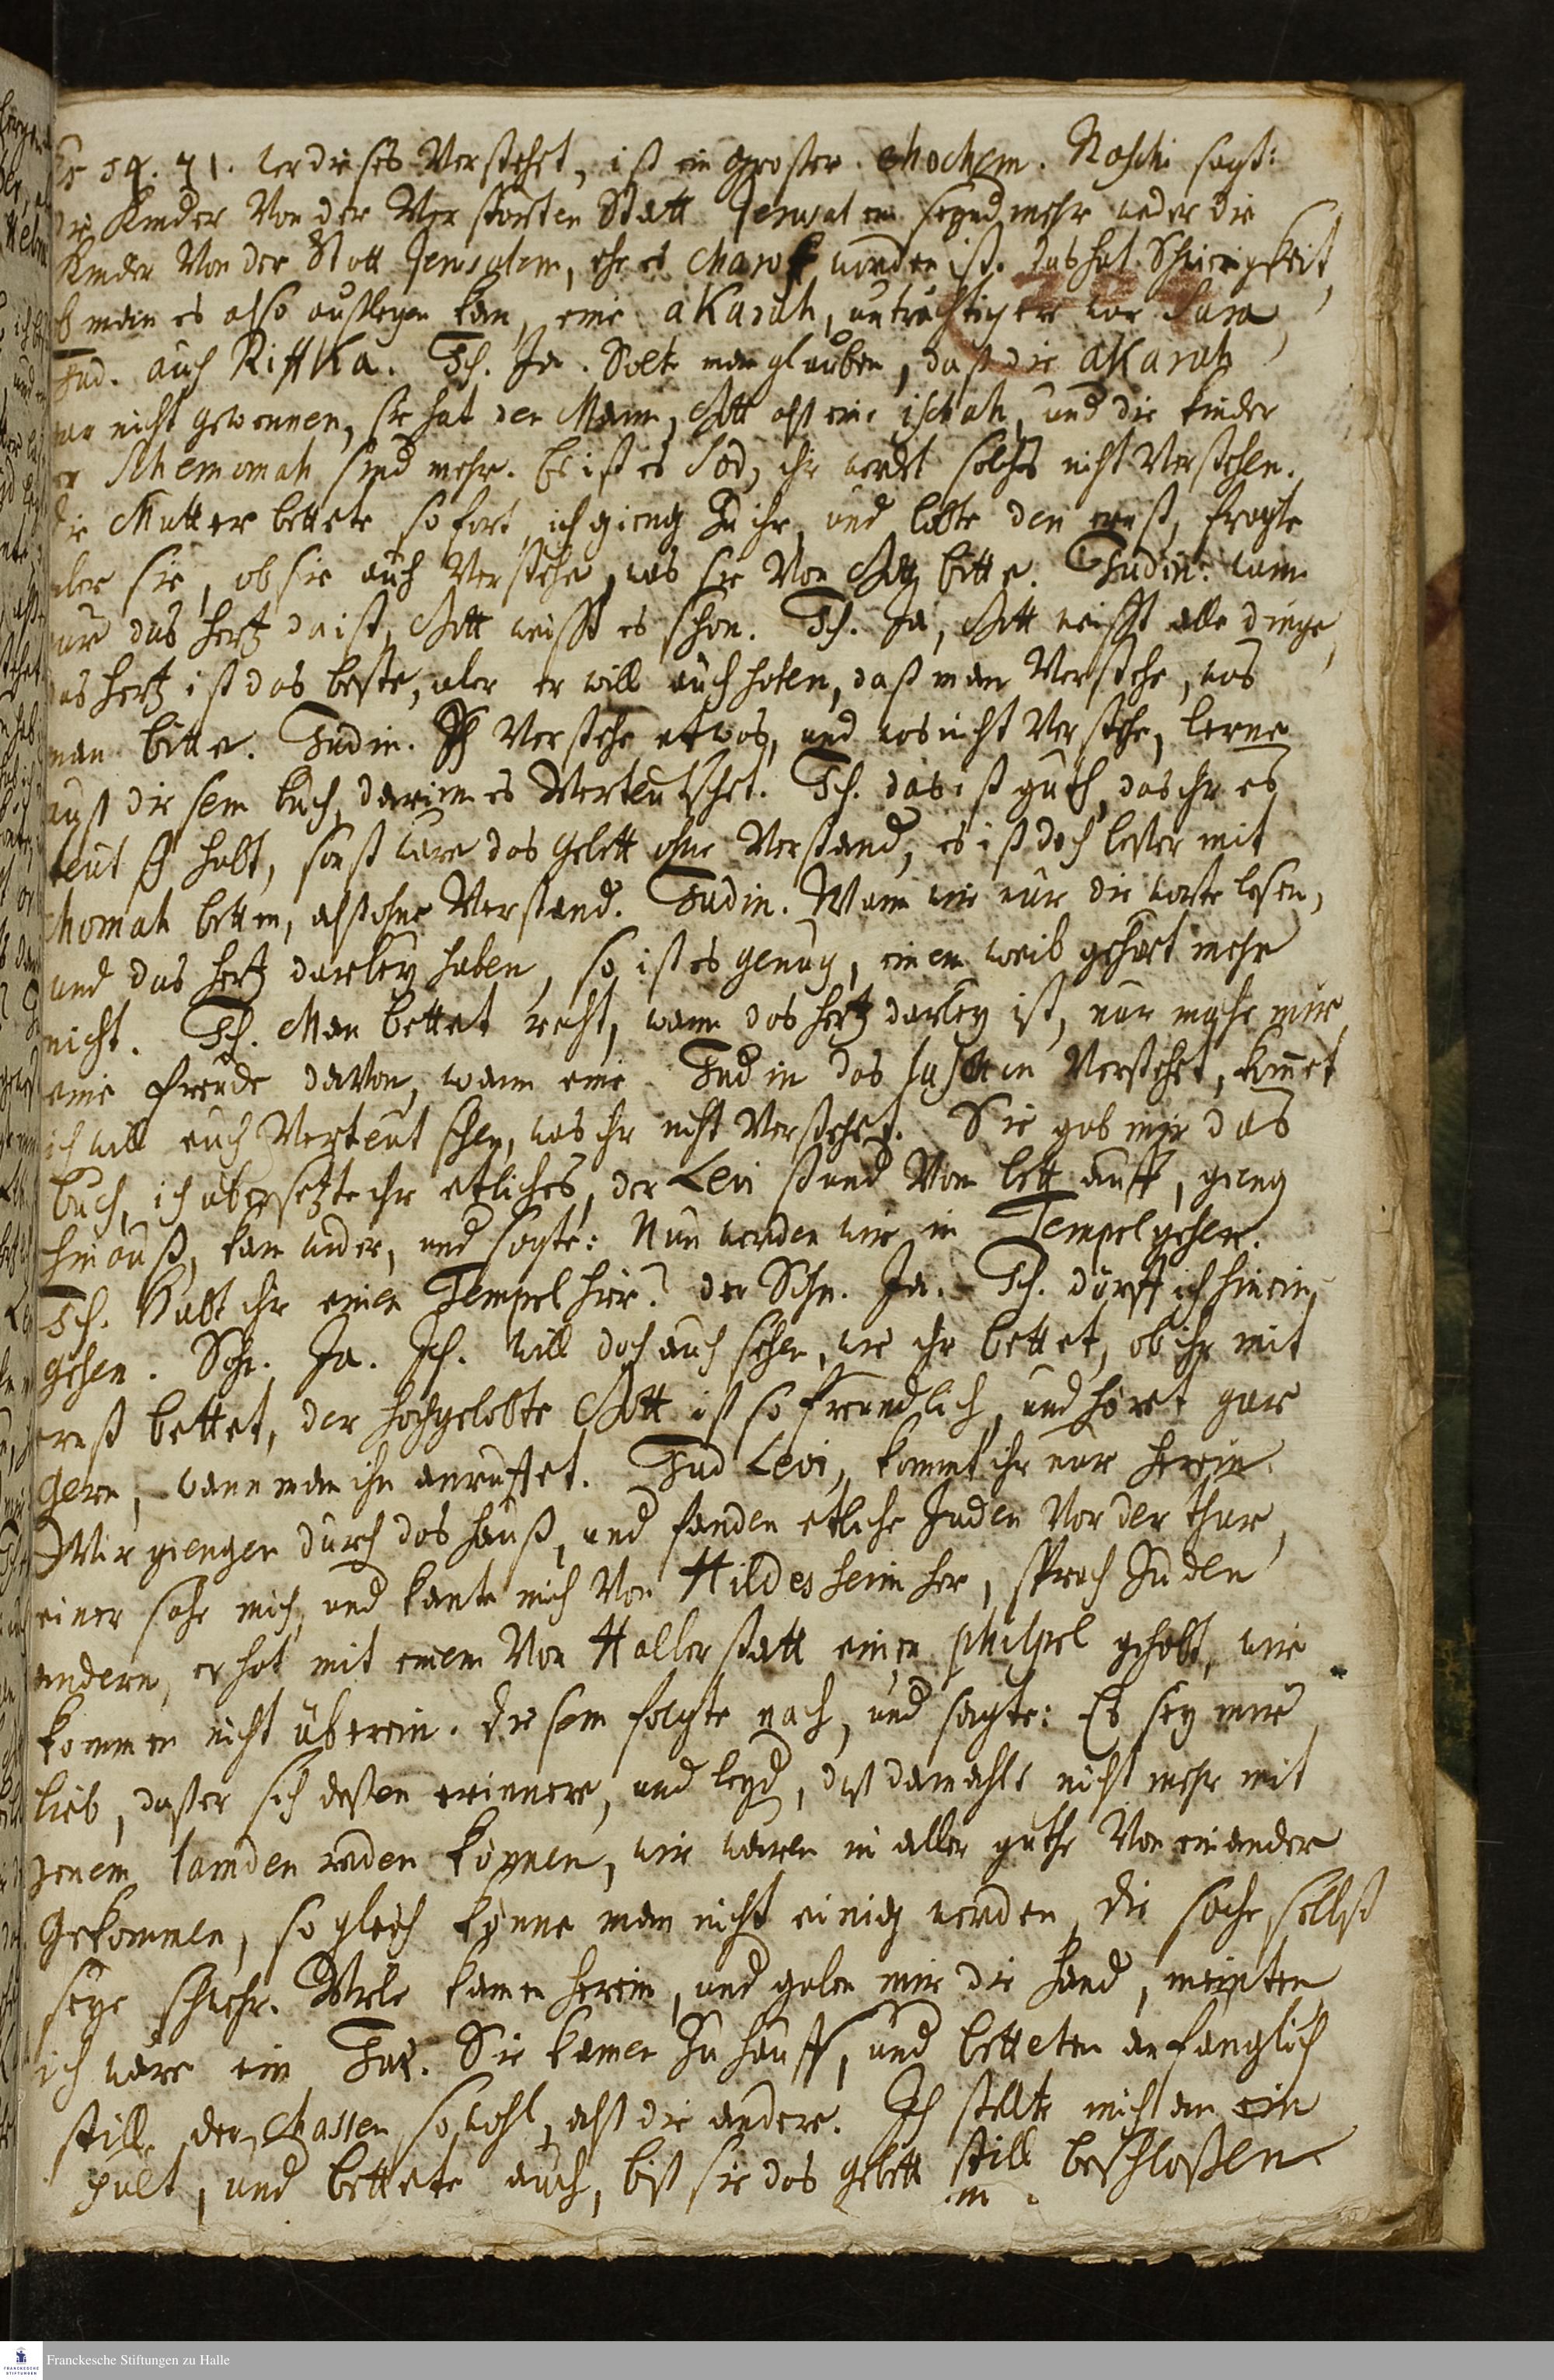 Es 54. 71. wer dieses Verstehet, ist ein groser chochem. Raschi sagt:
die Kinder Von der Verstörten Statt Jerusalem seynd mehr weder die
Kinder Von der Statt Jerusalem, ehe es charof worden ist. das hat Schwerigkeit,
ob man es also außlegen kan, eine akarah, unträchtigere war Sara,
Jud. auch Riffka. Ich. Ja. Solt man glauben, daß die akarah
gar nicht gewonnen, sie hat den Mann, Gott alß eine ischah, und die kinder
der Schemomah sind mehr. Es ist es Sod, ihr werdet solches nicht Verstehen.
die Mutter bettete so fort, ich gieng zu ihr, und lobte den ernst, fragte
aber sie, ob sie auch Verstehe, was sie Von Gott bitte. Judin: wann
nur das hertz da ist, Gott weißt es schon. Ich. Ja, Gott weißt alle dinge,
das hertz ist das beste, aber er will auch haben, daß man Verstehe, was
man bitte. Judin. Ich Verstehe etwas, und was nicht Verstehe, lerne
auß diesem buch, dariñ es Verteutschet. Ich. das ist guth, das ihr es
teutsch habt, sonst ware das gebett ohne Verstand, es ist doch besser mit
chomah betten, alß ohne Verstand. Judin. Wann wir nur die worte lesen,
und das hertz darbey haben, so ist es genug, einem weib gehört mehr
nicht. Ich. Man bettet recht, wann das hertz darbey ist, nur mache mir
eine freude davon, wann eine Judin das laschon Verstehet, kommet
ich will euch Verteutschen, was ihr nicht Verstehet. Sie gab mir das
buch, ich übersetzte ihr etliches, der Levi stund Vom bett auff, gieng
hinauß, kam wider, und sagte: Nun werden wir in Tempel gehen.
Ich. Habt ihr einen Tempel hier? der Sohn. Ja. Ich. dörfft ich hinein
gehen. Sohn. Ja. Ich. will doch auch sehen, wie ihr bettet, ob ihr mit
ernst bettet, der hochgelobte Gott ist so freundlich, und höret gar
Gern, wann man ihn anruffet. Jud Levi, kommt ihr nur herein.
Wir giengen durch das hauß, und fanden etliche Juden Vor der thur,
einer sahe mich, und kante mich Von Hildesheim her, sprach zu den
andern, er hat mit einem Von Halberstatt einen philpel gehabt, wir
kommen nicht überein. diesem folgte nach, und sagte: Es sey mir
lieb, daß er sich deßen erinnere, und leyd, daß damahls nicht mehr mit
jenem lamden reden können, wir waren in aller güthe Von einander
Gekommen, so gleich könne man nicht einig werden, die sache selbst
seye schwehr. Viele kamen herein, und gaben mir die hand, meinten
ich wäre ein Jud. Sie kamen zu hauff, und betteten anfanglich
still, der chassen sowohl, alß die andere. Ich stellte mich an ein
pult, und bettete auch, biß sie das gebett still beschloßen